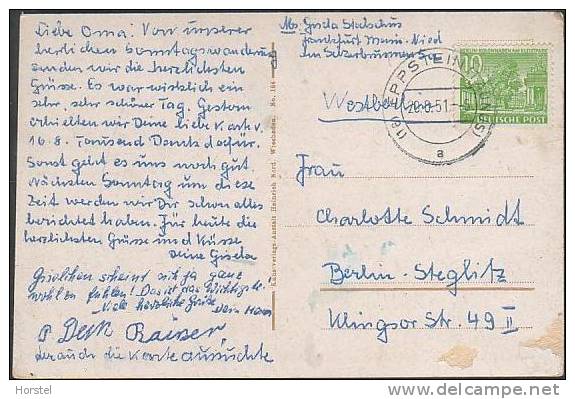 Liebe Oma! Von unserer
herrlichen Sonntagswanderung
senden wir die herzlichsten
Grüsse. Es war wirklich ein
sehr, sehr schöner Tag. Gestern
erhielten wir Deine liebe Karte v.
16.8. Tausend Dank dafür.
Sonst geht es uns noch gut.
Nächsten Sonntag um diese
Zeit werden wir Dir schon alles
berichtet haben. Für heute die
herzlichsten Grüsse und Küsse
Deine Gisela
scheint sich ja ganz
wohl zu fühlen! Das ist das Wichtigste.
Viele herzliche Grüße
Dein Hans
der auch die Karte aussuchte
Kunstverlags-Anstalt Heinrich Nord, Wiesbaden. No. 164
Abs. Gisela
Frankfurt Main-Nied
Westberlin
EPPSTEIN (TAUNUS)
(16)
20.8.51
a
BERLIN KOLONNADEN AM KLEISTPARK
10
DEUTSCHE POST
Frau
Charlotte Schmidt
Berlin-Steglitz
Klingsor Str. 49 II
Horstel
delcampe.net